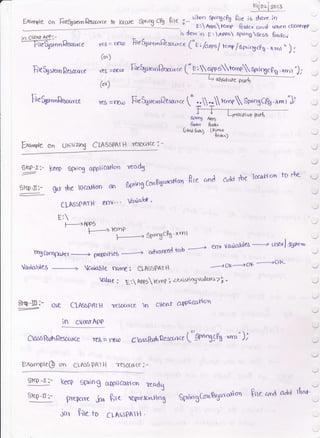 10/02/2013
Example on FileSystemResource to locate Spring Cfg file :-
when SpringCfg file is there in E:\Apps\temp folder and when clientApp is there in E:\Apps\spring\
in client APP:-
FileSystemResource res = new FileSystemResource ("E:/apps/temp/springcfg.xml");
(or)
FileSystemResource res = new FileSystemResource ("E:\\apps\\temp\\springcfg.xml");
absolute path
(or)
FileSystemResource res = new FileSystemResource ("..\\..\\temp\\SpringCfg.xml");
spring folder
Apps folder
relative path
Example on Utilizing CLASSPATH resource :-
Step-I:- keep spring application ready
Step-II:- get the location on Spring Configuration file and add the location to the CLASSPATH env... variable.
E:\
Apps
temp
SpringCfg.xml
mycomputer → properties → advanced tab → env variables → user/system
variables → Variable name: CLASSPATH → ok → ok → ok
value: E:\Apps\temp; <existing values>;.
Step-III:- use CLASSPATH resource in client application
in client App
ClassPathResource res = new ClassPathResource ("SpringCfg.xml");
Example② on CLASSPATH resource:-
Step-I:- keep spring application ready
Step-II:- prepare jar file representing Spring Configuration file and add that jar file to CLASSPATH.